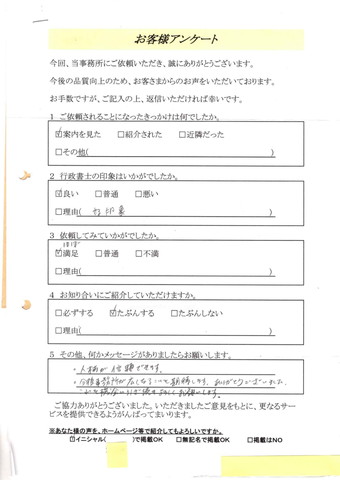 お客様アンケート
今回、当事務所にご依頼いただき、誠にありがとうございます。
今後の品質向上のため、お客さまからのお声をいただいております。
お手数ですが、ご記入の上、返信いただければ幸いです。
1 ご依頼されることになったきっかけは何でしたか。
☑案内を見た □紹介された □近隣だった
□その他( )
2 行政書士の印象はいかがでしたか。
☑良い □普通 □悪い
□理由( 好印象 )
3 依頼してみていかがでしたか。
ほぼ
☑満足 □普通 □不満
□理由( )
4 お知り合いにご紹介していただけますか。
□必ずする ☑たぶんする □たぶんしない
□理由( )
5 その他、何かメッセージがありましたらお願いします。
・人柄が信頼できます。
ありがとうございました。
ご協力ありがとうございました。いただきましたご意見をもとに、更なるサー
ビスを提供できるようがんばってまいります。
※あなた様の声を、ホームページ等で紹介してもよろしいですか。
☑イニシャル( )で掲載OK □無記名で掲載OK □掲載はNO